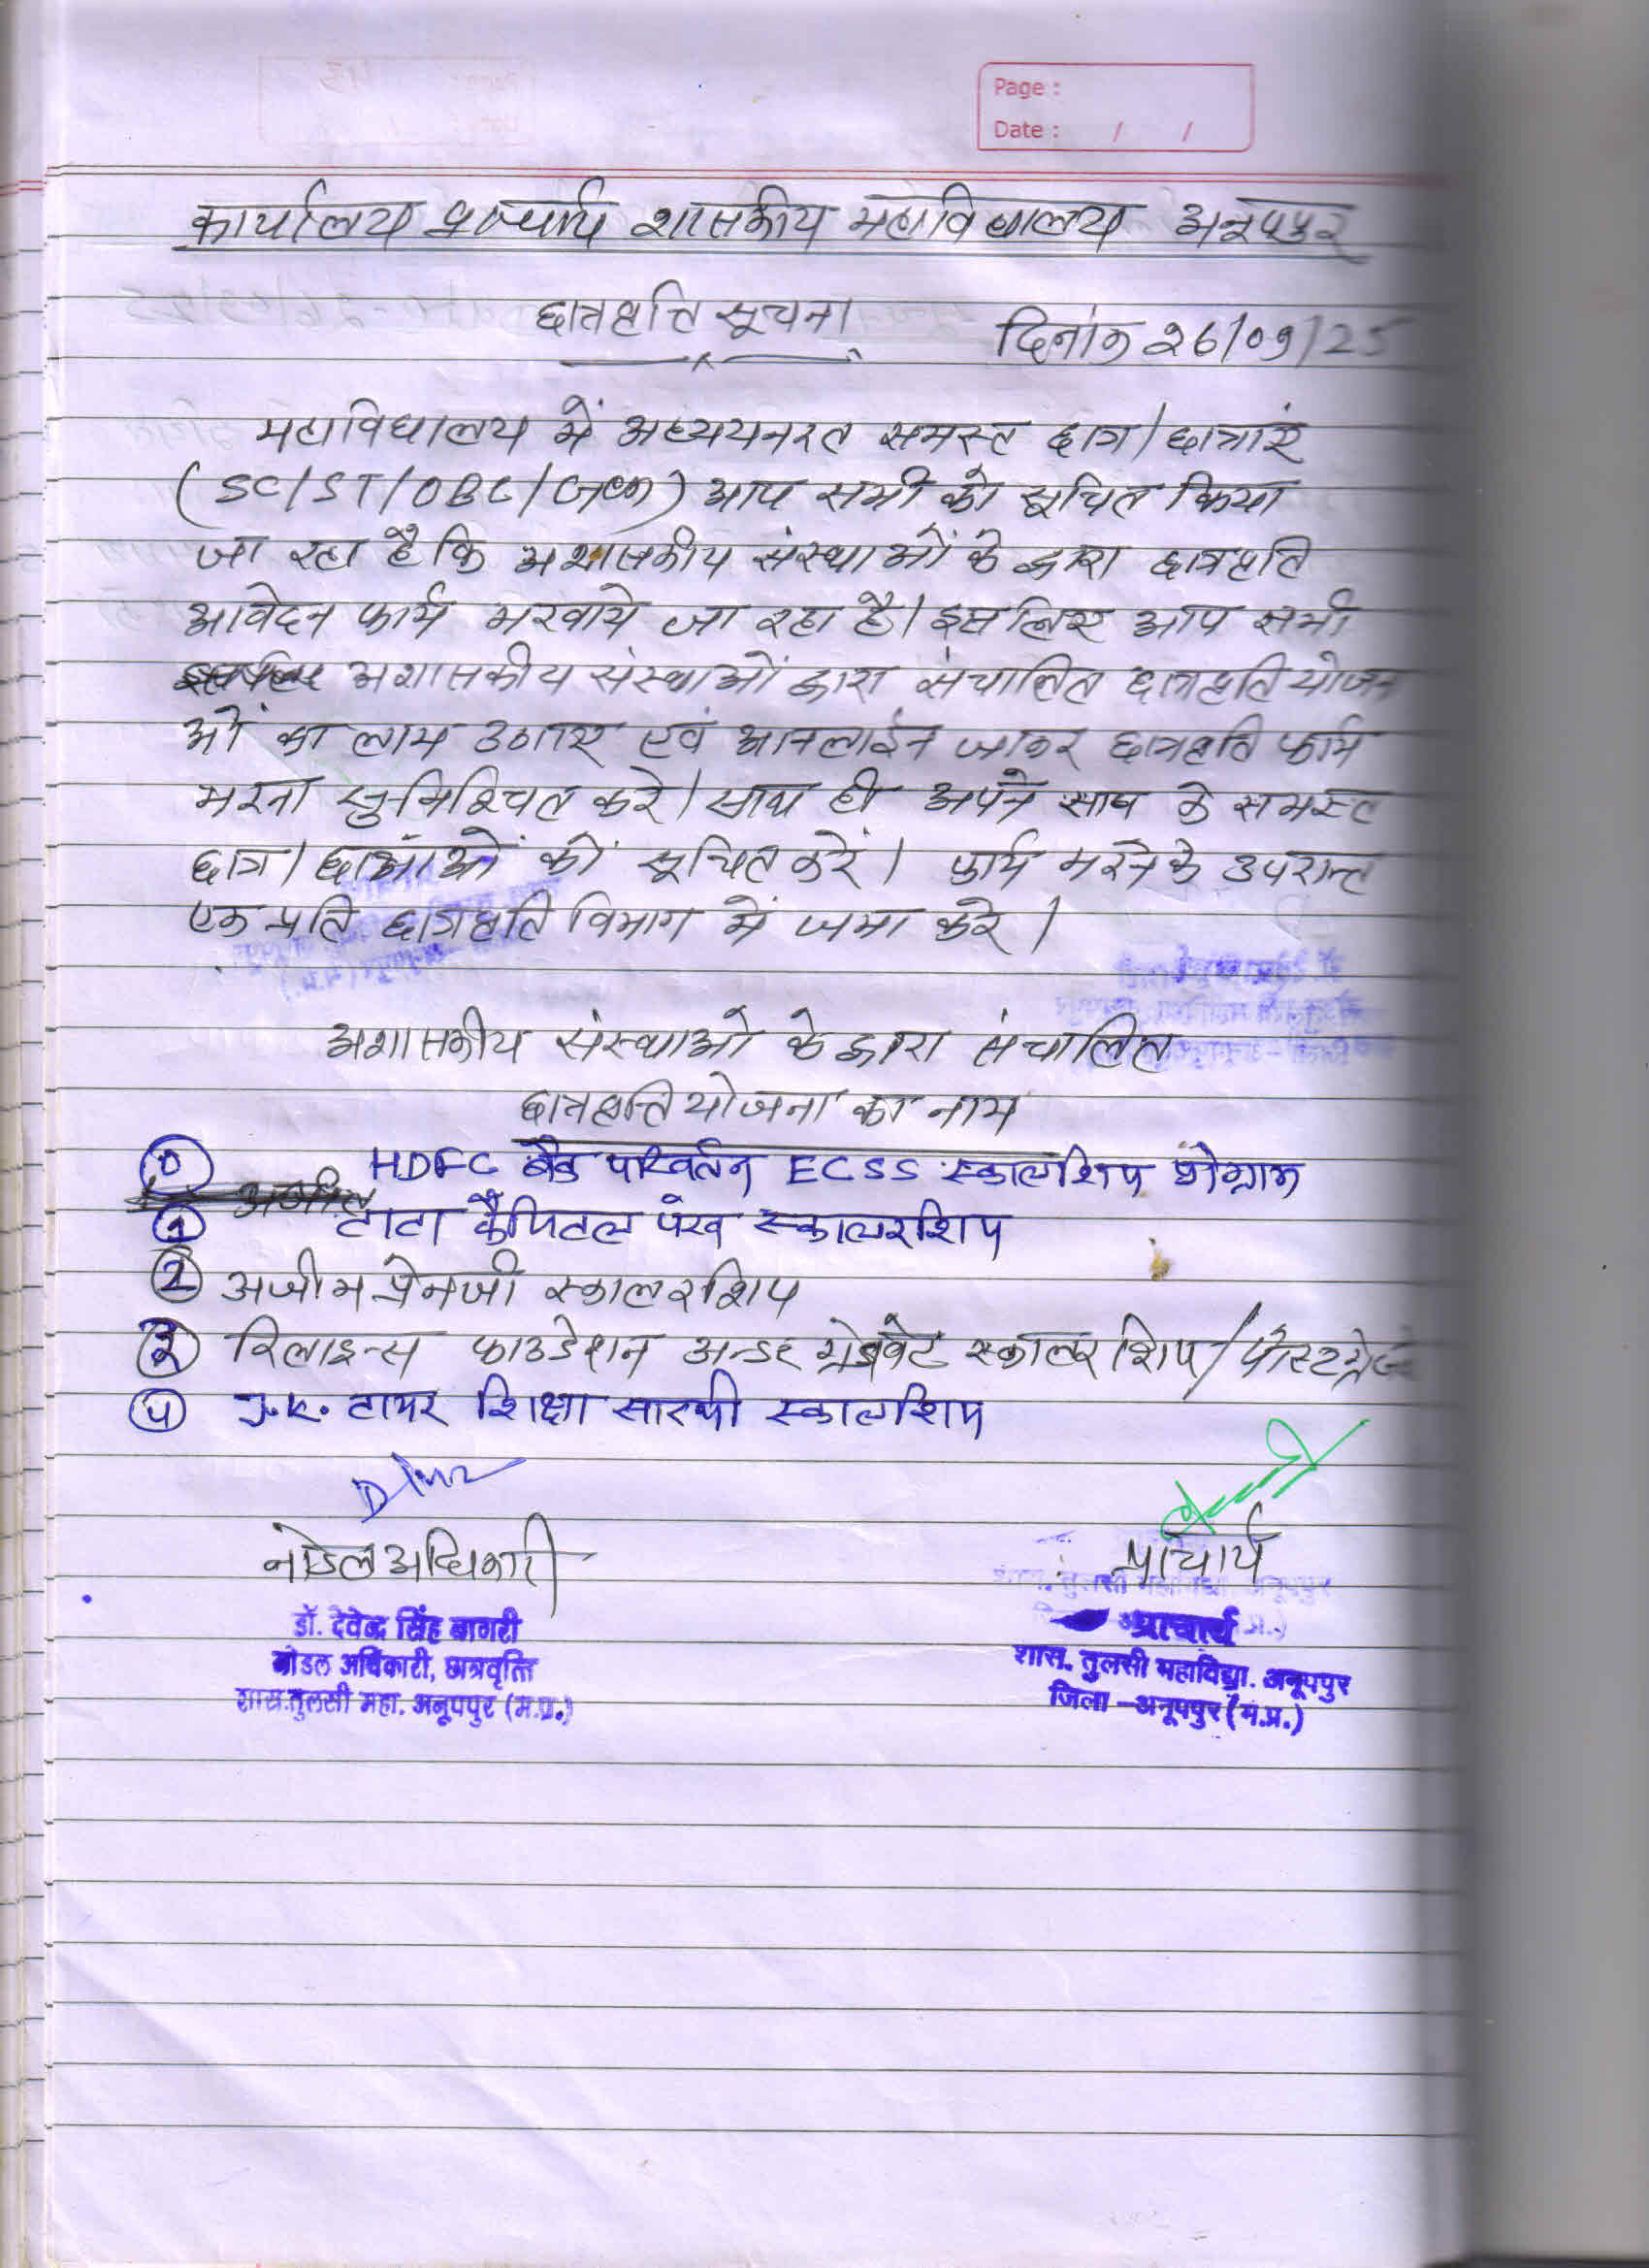 Page :
Date : / /
कार्यालय प्राचार्य शासकीय महाविद्यालय अनूपपुर
छात्रवृत्ति सूचना
दिनांक 26/09/25
महाविद्यालय में अध्ययनरत समस्त छात्र/छात्राएं
(SC/ST/OBC/Gen) आप सभी को सूचित किया
जा रहा है कि अशासकीय संस्थाओं के द्वारा छात्रवृति
आवेदन फार्म भरवाये जा रहा है। इसलिए आप सभी
अशासकीय संस्थाओं द्वारा संचालित छात्रवृति योजन
ओं का लाभ उठाए एवं आनलाईन जाकर छात्रवृति फार्म
भरना सुनिश्चित करे। साथ ही अपने साथ के समस्त
छात्र/छात्राओं को सूचित करें। फार्म भरने के उपरान्त
एक प्रति छात्रवृति विभाग में जमा करे।
अशासकीय संस्थाओ के द्वारा संचालित
छात्रवृत्ति योजना का नाम
HDFC बैंक परिवर्तन ECSS स्कालशिप प्रोग्राम
① टाटा कैपिटल पंख स्कालरशिप
② अजीम प्रेमजी स्कालरशिप
③ रिलाइन्स फाउडेशन अन्डर ग्रेजुवेट स्कालर शिप/पोस्टग्रेजु
④ J.K. टायर शिक्षा सारथी स्कालशिप
नोडल अधिकारी
प्राचार्य
डॉ. देवेन्द्र सिंह बागरी
नोडल अधिकारी, छात्रवृत्ति
शास.तुलसी महा. अनूपपुर (म.प्र.)
प्राचार्य
शास. तुलसी महाविद्या. अनूपपुर
जिला -अनूपपुर (म.प्र.)